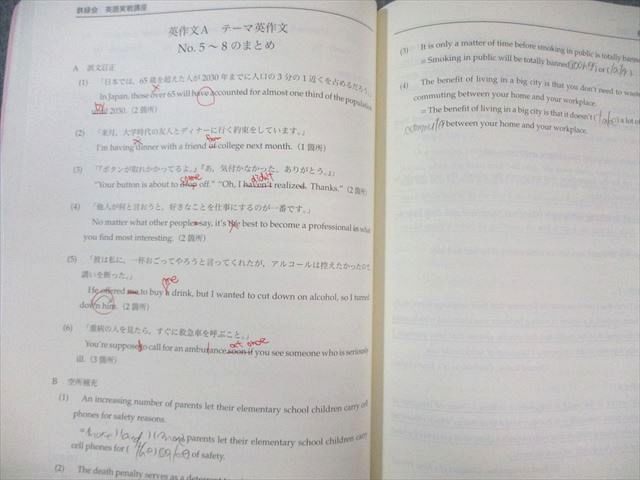 鉄緑会 英語実戦講座
英作文A テーマ英作文
No. 5 ~ 8 のまとめ
A 誤文訂正
(1) 「日本では、65 歳を超えた人が 2030 年までに人口の 3 分の 1 近くを占めるだろう。」
In Japan, those over 65 will have accounted for almost one third of the population
by
2030. (2 箇所)
(2) 「来月、大学時代の友人とディナーに行く約束をしています。」
from
I'm having dinner with a friend of college next month. (1 箇所)
(3) 「『ボタンが取れかかってるよ。』『あ、気付かなかった。ありがとう。』」
come didn't
"Your button is about to drop off." "Oh, I haven't realized. Thanks." (2 箇所)
(4) 「他人が何と言おうと、好きなことを仕事にするのが一番です。」
No matter what other people say, it's the best to become a professional in what
you find most interesting. (2 箇所)
(5) 「彼は私に、一杯おごってやろうと言ってくれたが、アルコールは控えたかったので
誘いを断った。」
me
He offered me to buy a drink, but I wanted to cut down on alcohol, so I turned
down him. (2 箇所)
(6) 「重病の人を見たら、すぐに救急車を呼ぶこと。」
at once
You're supposed to call for an ambulance soon if you see someone who is seriously
ill. (3 箇所)
B 空所補充
(1) An increasing number of parents let their elementary school children carry cell
phones for safety reasons.
= (more) (and) (more) parents let their elementary school children carry
cell phones for (the) (sake) of safety.
(2) The death penalty serves as a
(3) It is only a matter of time before smoking in public is totally banned
= Smoking in public will be totally banned
(4) The benefit of living in a big city is that you don't need to
commuting between your home and your workplace.
= The benefit of living in a big city is that it doesn't (take) a lot of
between your home and your workplace.